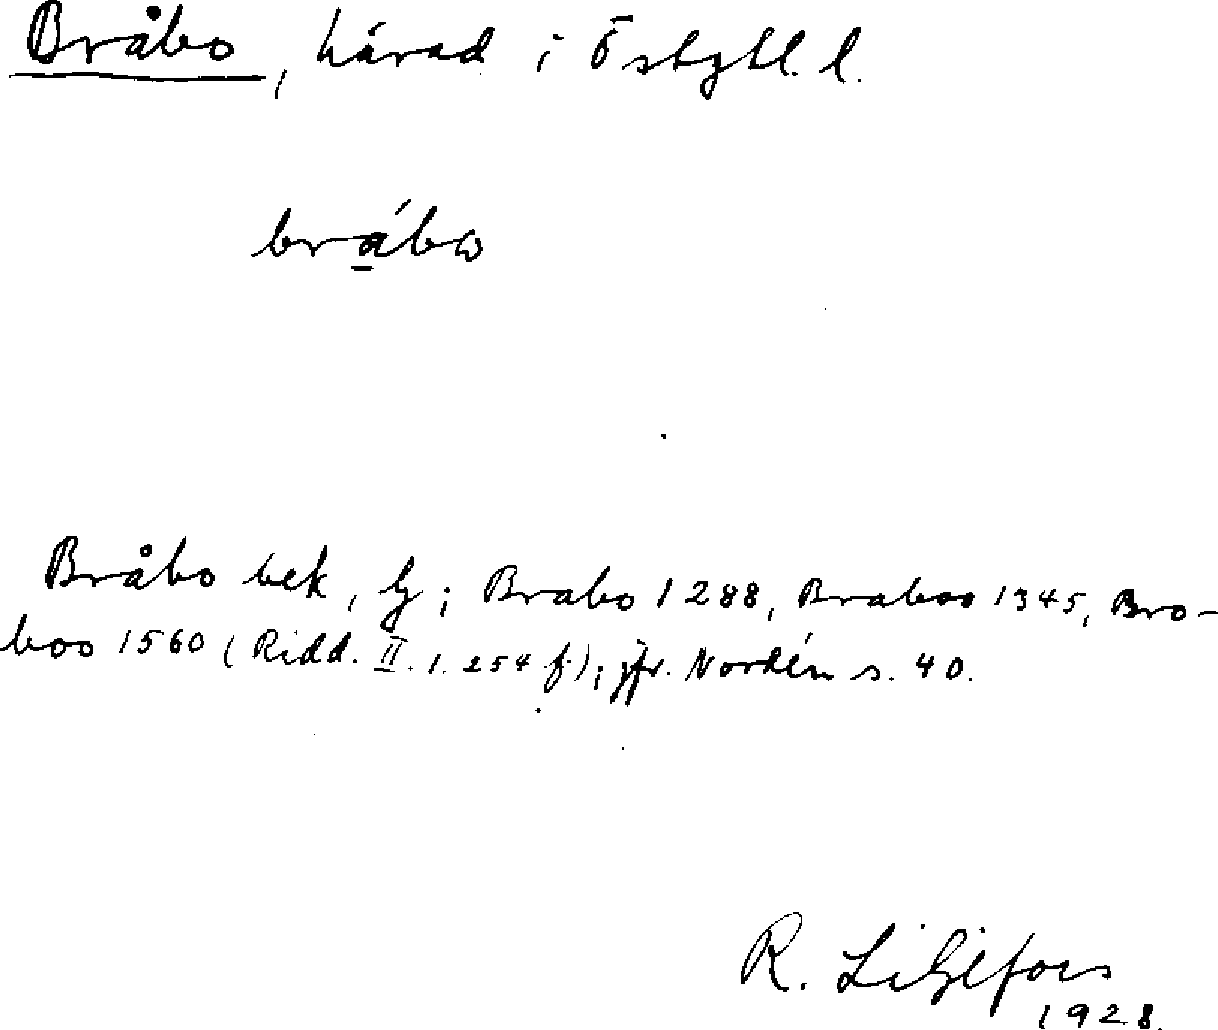 Bråbo, härad i Östgtl. l.
brábω
Bråbo bek, G; Brabo 1288, Braboo 1345, Bro-
boo 1560 (Ridd. II. 1. 254 f.); jfr. Nordén s. 40.
R. Liljefors
1928.